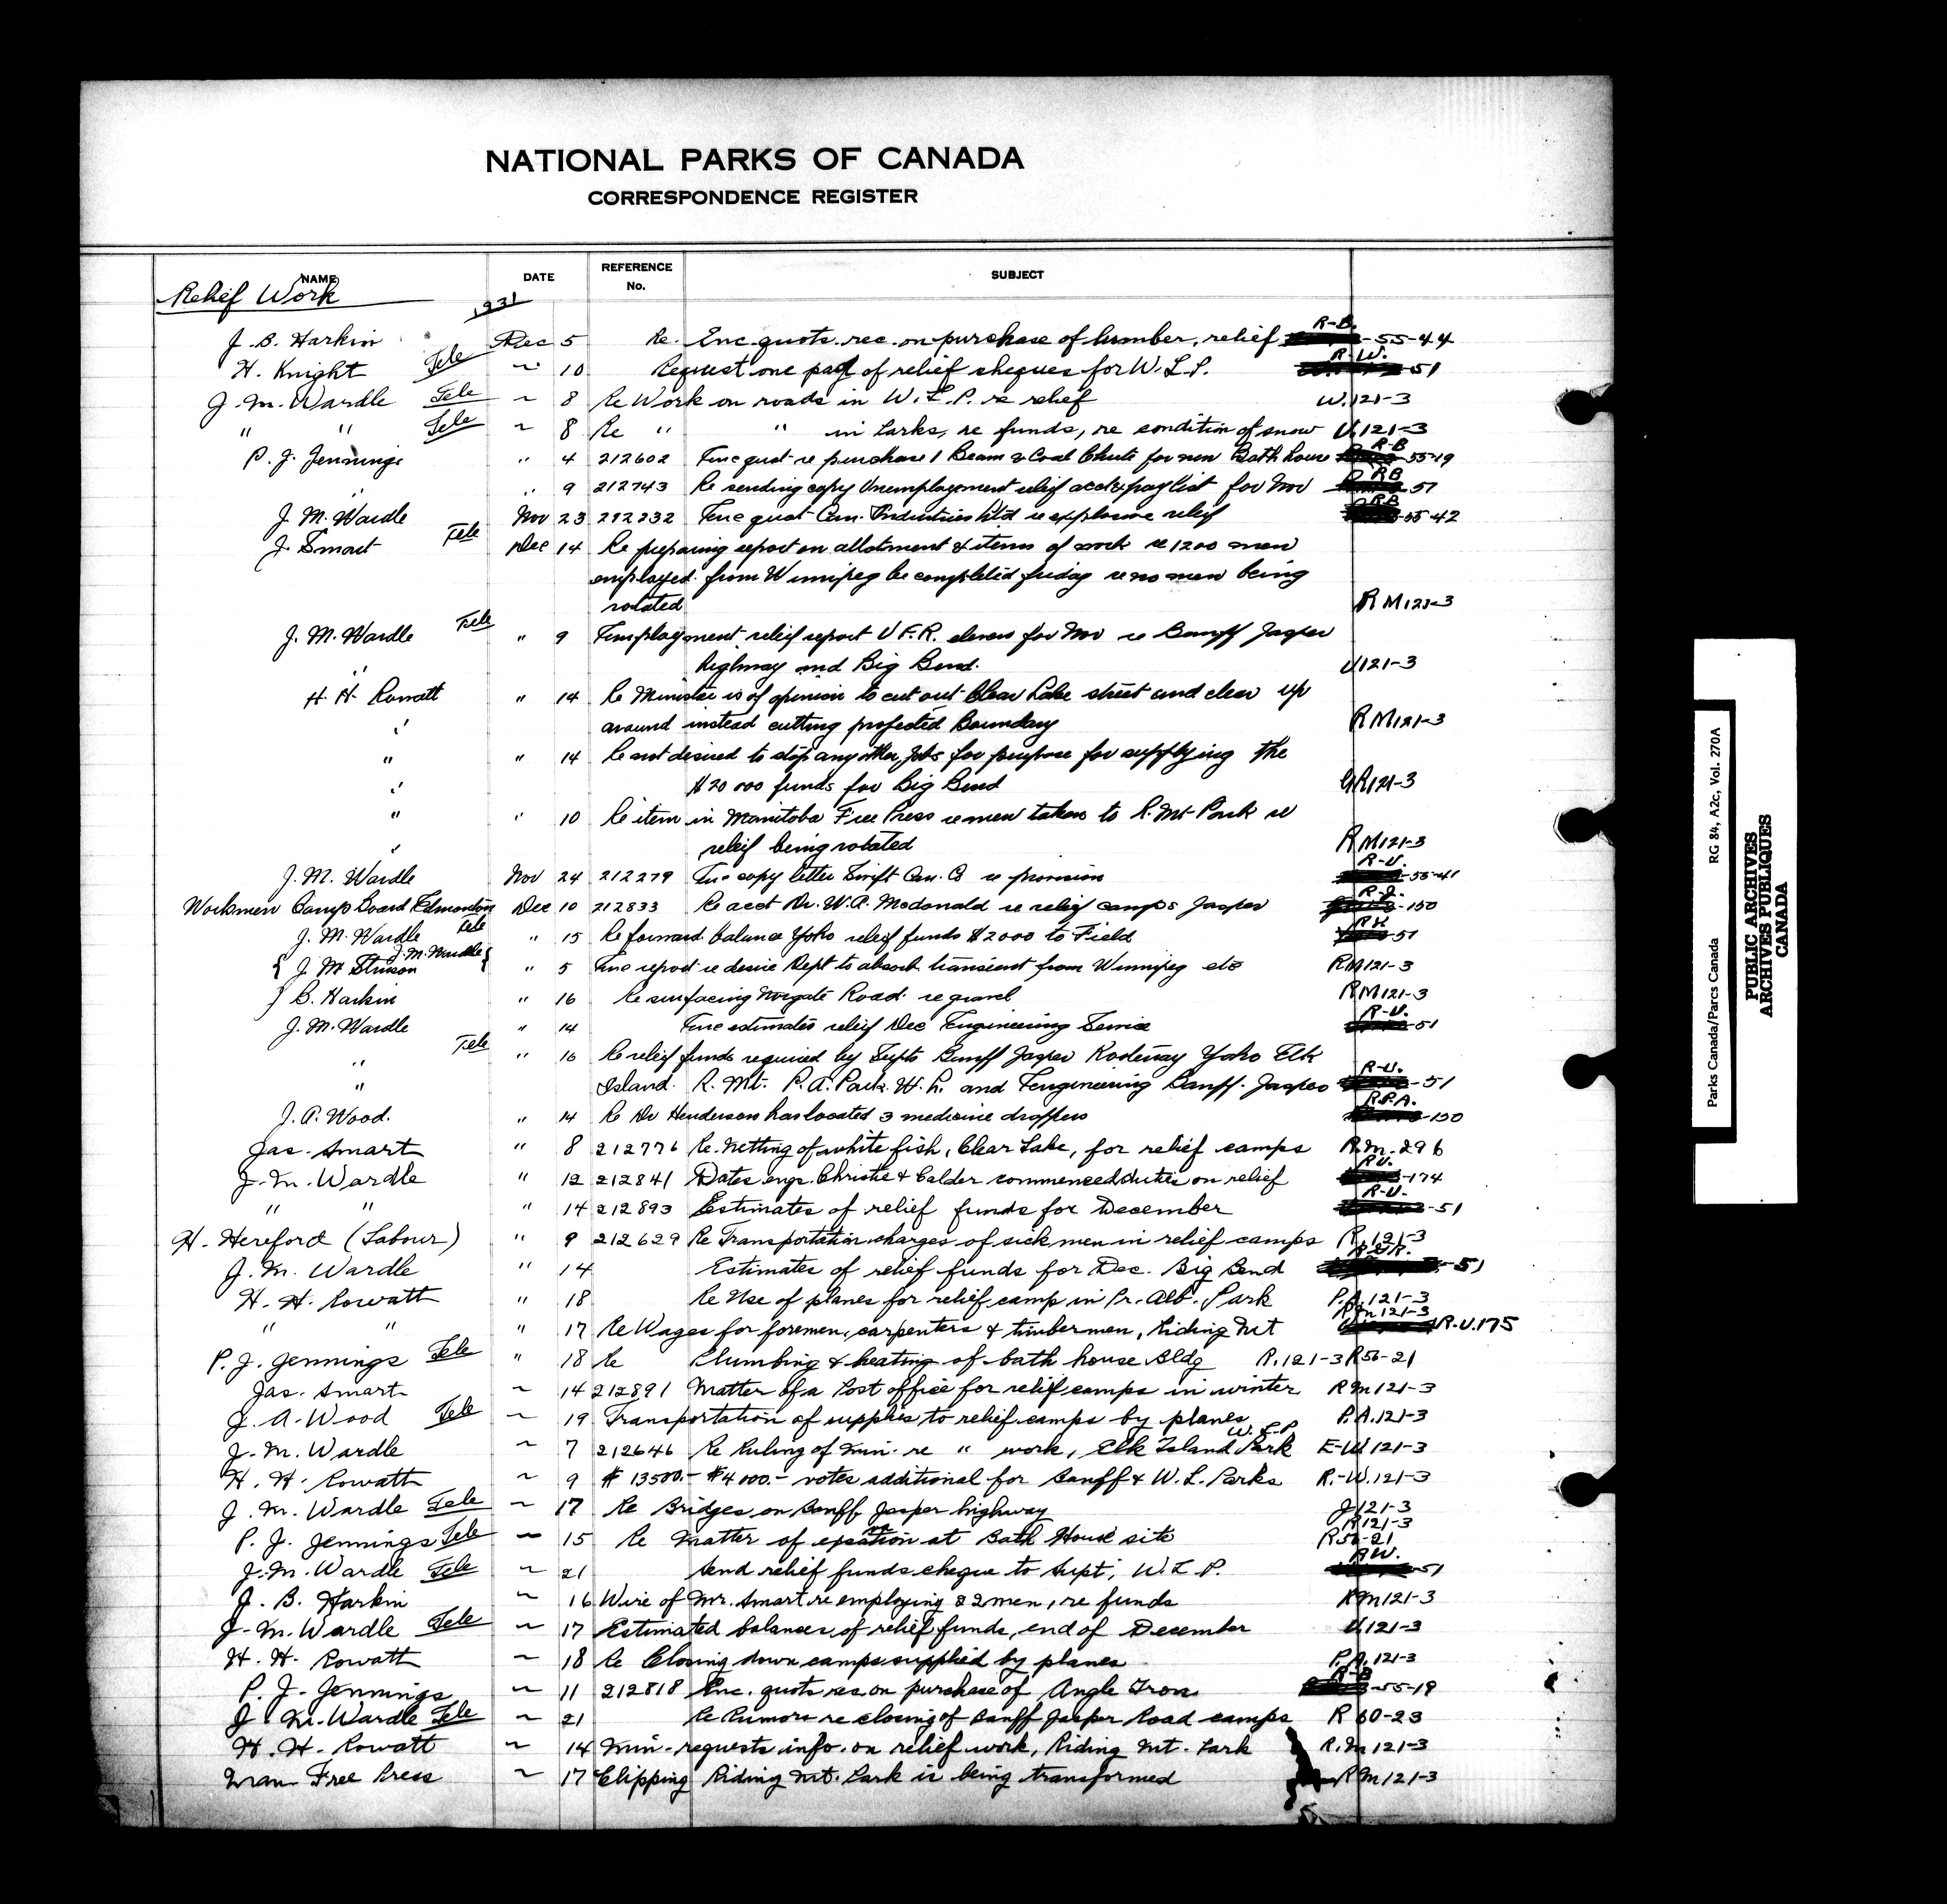 NATIONAL PARKS OF CANADA
CORRESPONDENCE REGISTER
NAME DATE REFERENCE No. SUBJECT
Relief Work 1931
J. B. Harkin Dec 5 Re. Enc. quots. rec. on purchase of lumber, relief R-B. -55-44
H. Knight Tele " 10 Request one pad of relief cheques for W. L. P. R.W. 51
J. M. Wardle Tele " 8 Re Work on roads in W. L. P. re relief W.121-3
" " Tele " 8 Re " " in Parks, re funds, re condition of snow U.121-3
P. J. Jennings " 4 212602 Enc quot re purchase 1 Beam & Coal Chute for new Bath house R-B 55-19
" " 9 212743 Re sending copy Unemployment relief acct & pay list for Nov RB 51
J. M. Wardle Nov 23 212232 Enc quot Can. Industries Ltd re explosive relief RB 55-42
J. Smart Tele Dec 14 Re preparing report on allotment & items of work re 1200 men
employed from Winnipeg be completed friday re no men being
rotated RM121-3
J. M. Wardle Tele " 9 Employment relief report U.F.R. eleven for Nov re Banff Jasper
" highway and Big Bend. U121-3
H. H. Rowatt " 14 Re Minister is of opinion to cut out Clear Lake street and clear up
" around instead cutting projected Boundary RM121-3
" " 14 Re not desired to stop any other jobs for purpose for supplying the
" $20 000 funds for Big Bend GR121-3
" " 10 Re item in Manitoba Free Press re men taken to R. Mt Park re
" relief being rotated RM121-3
J. M. Wardle Nov 24 212279 Enc copy letter Swift Can. Co re provision R-U. 55-41
Workmen Comp Board Edmonton Dec 10 212833 Re acct Dr. W. A. McDonald re relief camps Jasper R-J. -150
J. M. Wardle Tele " 15 Re forward balance Yoho relief funds $2000 to Field 51
{ J M Stinson J. M. Wardle } " 5 Enc report re desire Dept to absorb transient from Winnipeg etc RM121-3
} B. Harkin " 16 Re surfacing Norgate Road re gravel RM121-3
J. M. Wardle " 14 Enc estimates relief Dec Engineering Service R-U. -51
" Tele " 16 Re relief funds required by Supts Banff Jasper Kootenay Yoho Elk
" Island. R. Mt. P. A. Park. W. L. and Engineering Banff-Jasper R-U. -51
J. A. Wood. " 14 Re Dr Henderson has located 3 medicine droppers R.P.A. -150
Jas. Smart " 8 212776 Re. Netting of white fish, Clear Lake, for relief camps R.M. 296
J. M. Wardle " 12 212841 Dates engs. Christie & Calder commenced duties on relief R.U. -174
" " " 14 212893 Estimates of relief funds for December R-U. -51
H. Hereford (Labour) " 9 212629 Re Transportation charges of sick men in relief camps R.121-3
J. M. Wardle " 14 Estimates of relief funds for Dec. Big Bend -51
H. H. Rowatt " 18 Re Use of planes for relief camp in Pr. Alb. Park P.A.121-3
" " " 17 Re Wages for foremen, carpenters & timbermen, Riding Mt Rm 121-3 R.U.175
P. J. Jennings Tele " 18 Re Plumbing & heating of bath house Bldg R.121-3 R56-21
Jas. Smart " 14 212891 Matter of a Post office for relief camps in winter RM121-3
J. A. Wood Tele " 19 Transportation of supplies to relief camps by planes P.A.121-3
J. M. Wardle " 7 212646 Re Ruling of Min. re " work, Elk Island Park W. L. P. E-W 121-3
H. H. Rowatt " 9 $13500.- $4000.- votes additional for Banff & W. L. Parks R.-W.121-3
J. M. Wardle Tele " 17 Re Bridges on Banff Jasper highway J121-3
P. J. Jennings Tele " 15 Re Matter of at Bath House site R121-3 R56-21
J. M. Wardle Tele " 21 Send relief funds cheque to Supt, W. L. P. RW. 51
J. B. Harkin " 16 Wire of Mr. Smart re employing 82 men, re funds RM121-3
J. M. Wardle Tele " 17 Estimated balances of relief funds, end of December U.121-3
H. H. Rowatt " 18 Re Closing down camps supplied by planes P.A.121-3
P. J. Jennings " 11 212818 Enc. quots res on purchase of Angle Iron R-B -55-19
J. M. Wardle Tele " 21 Re Rumors re closing of Banff Jasper Road camps R 60-23
H. H. Rowatt " 14 Min. requests info. on relief work, Riding Mt. Park R.M 121-3
Man Free Press " 17 Clipping Riding Mt. Park is being transformed RM121-3
Parks Canada/Parcs Canada RG 84, A2c, Vol. 270A
PUBLIC ARCHIVES
ARCHIVES PUBLIQUES
CANADA